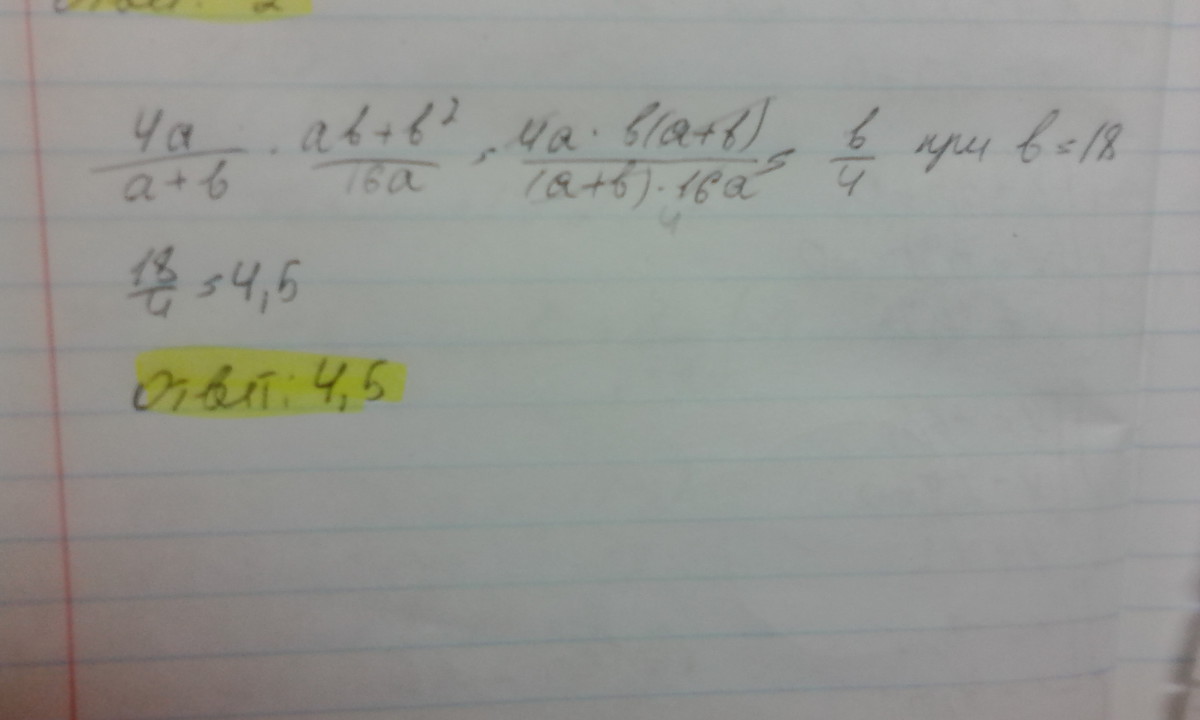 4a/(a+b) · (ab+b²)/16a = 4a·b(a+b)/((a+b)·16a) = b/4 при b=18
4
18/4 = 4,5
Ответ: 4,5